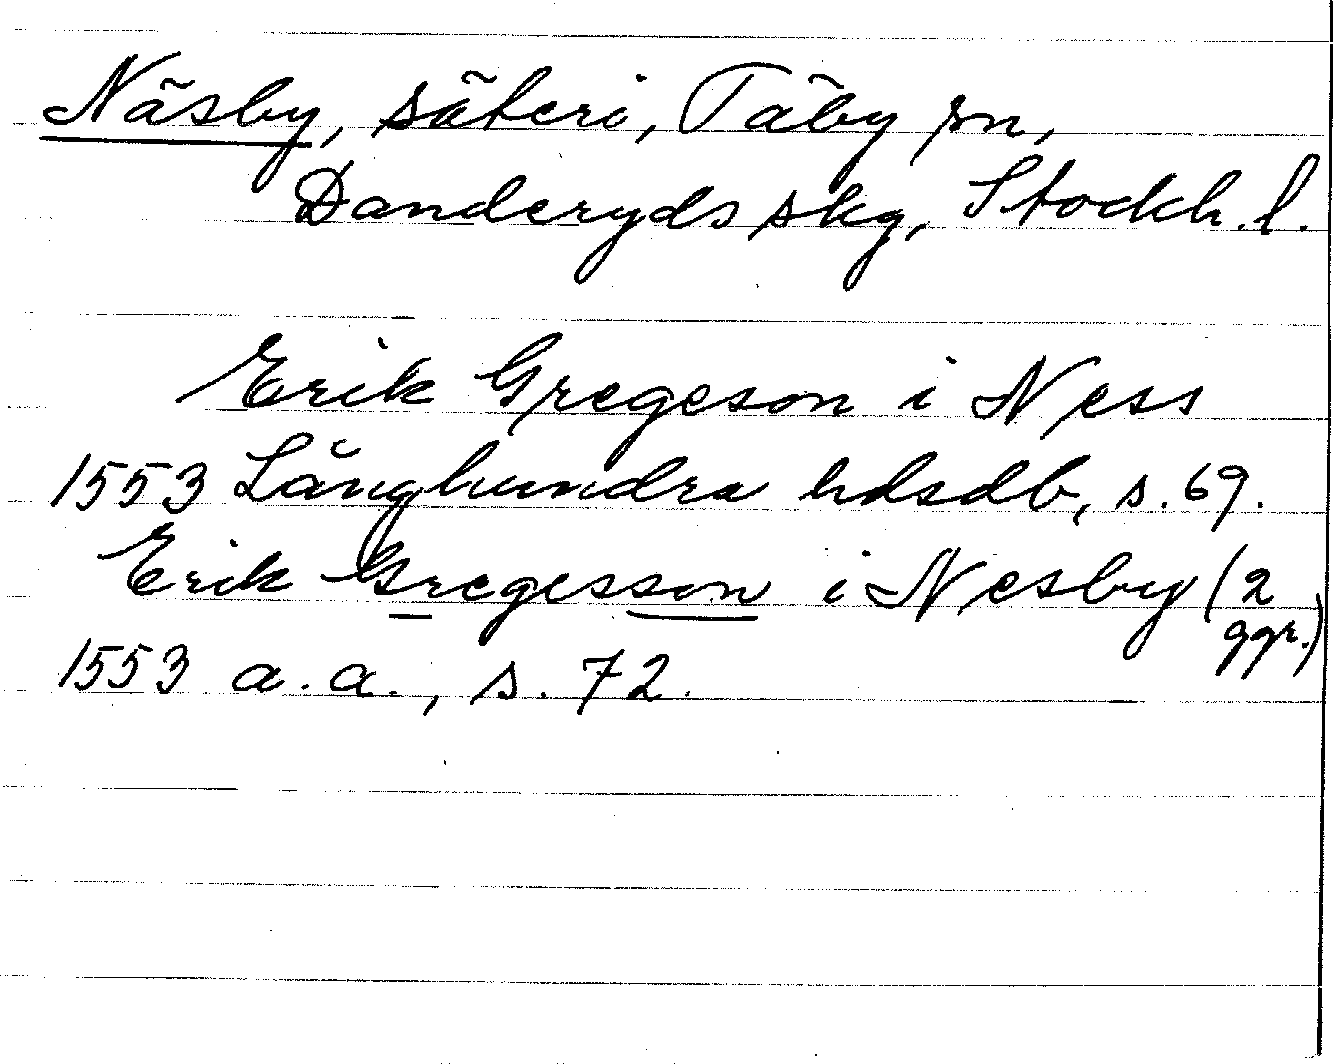 Näsby, säteri, Täby sn,
Danderyds skg, Stockh. l.
Erik Gregeson i Ness
1553 Långhundra hdsdb, s. 69.
Erik Gregesson i Nesby (2
ggr.)
1553 a.a., s. 72.